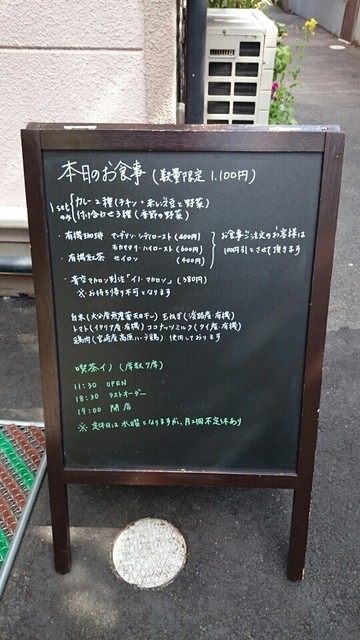 本日のお食事 (数量限定 1.100円)
1setのみ カレー2種 (チキン・赤い豆と野菜)
付け合わせ3種 (季節の野菜)
・有機珈琲 マンデリン・シティロースト (600円)
ハイロースト (600円)
・有機紅茶 セイロン (600円)
お食事ご注文のお客様は
100円引とさせて頂きます
マカロン (380円)
※お持ち帰り不可となります
白米 玉ねぎ (淡路産・有機)
トマト (イタリア産・有機) ココナッツミルク (タイ産・有機)
鶏肉 (宮崎産 高原ハーブ鶏) 使用しております
喫茶イノ (席数7席)
11:30 OPEN
18:30 ラストオーダー
19:00 閉店
※定休日は水曜となりますが、月2回不定休あり